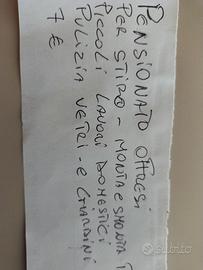 PENSIONATO OFFRESI
PER STIRO - MONTA E SMONTA T
PICCOLI LAVORI DOMESTICI
PULIZIA VETRI - E GIARDINI
7 €
subito